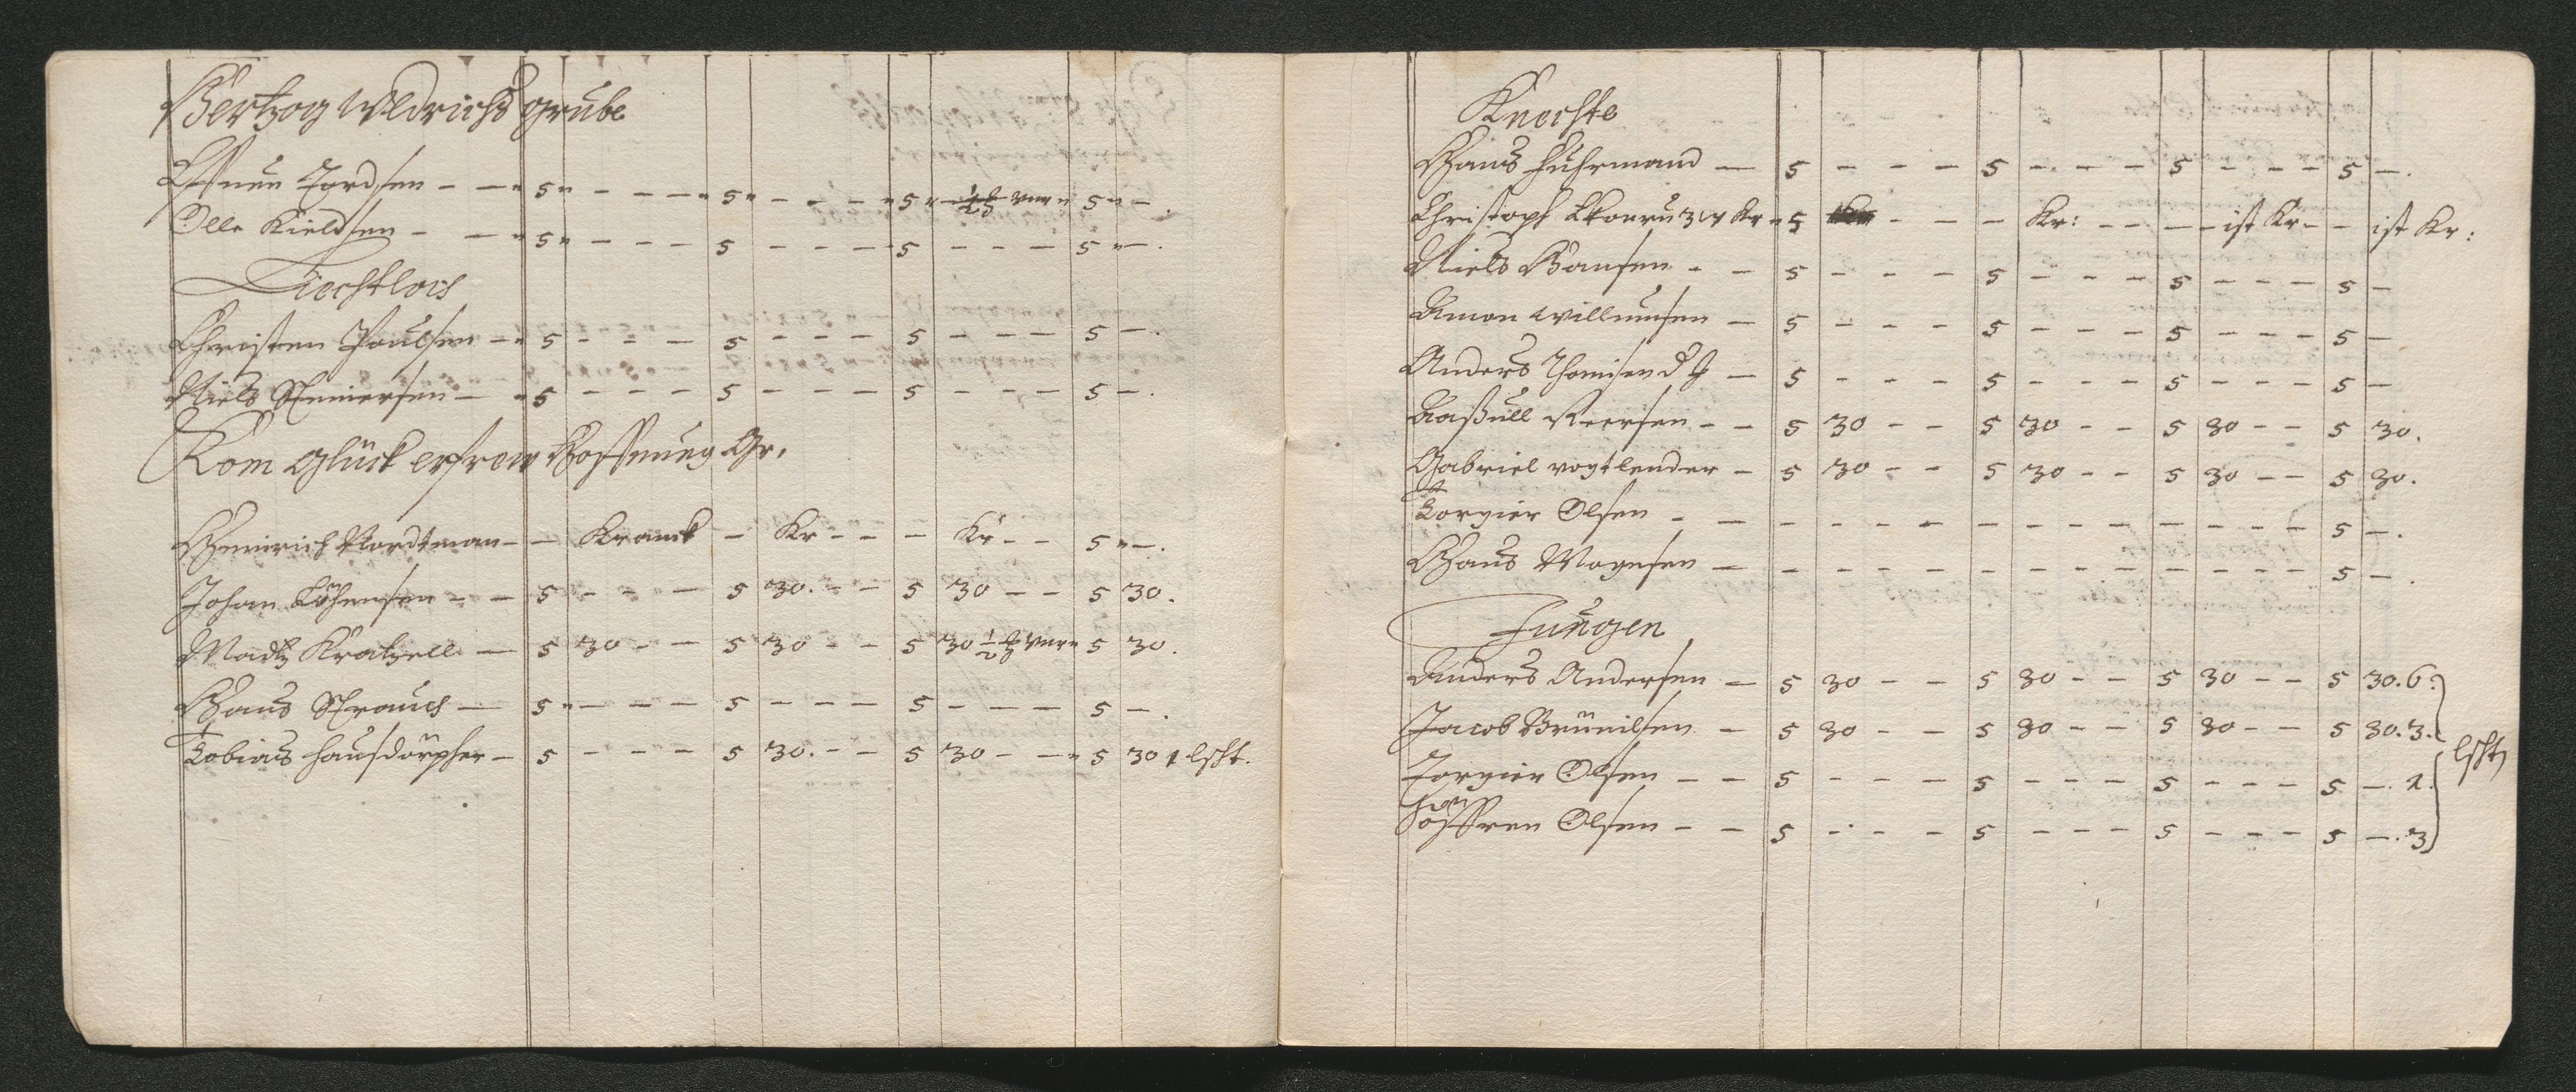 Hertzog Uldrichs grube
Effuen Tordsen - - 5 - - - 5 - - - 5 - 1/2 5 - .
Olle Kieldsen - - 5 - - - 5 - - - 5 - - - 5 - .
Christen Poulsen - 5 - - - 5 - - - 5 - - - 5 - .
Niels Steniersen - 5 - - - 5 - - - 5 - - - 5 - .
Kom glück erfrew Hoffnung Gr.
Heinrich Nordtman - - Kranck - Kr - - - Kr - - 5 - .
Johan Löhensen - - 5 - - - 5 30. - - 5 30 - - 5 30.
Madtz Kratzell - 5 30 - - 5 30 - - 5 30 1/2 5 30.
Hans Strauch - 5 - - - 5 - - - 5 - - - 5 - .
Tobias Hausdörpher - 5 - - - 5 30. - - 5 30 - - 5 30 1 lscht.
Knechte
Hans Fuhrmand - 5 - - - 5 - - - 5 - - - 5 - .
Christoph Kr 5 - - - Kr: - - - - ist Kr - - ist Kr:
Niels Hansen - - 5 - - - 5 - - - 5 - - - 5 -
Amon Willumsen - 5 - - - 5 - - - 5 - - - 5 -
Anders Thomisen d J - 5 - - - 5 - - - 5 - - - 5 -
Aaßull Peersen - - 5 30 - - 5 30 - - 5 30 - - 5 30.
Gabriel Vogtlender - 5 30 - - 5 30 - - 5 30 - - 5 30.
Torgier Olsen - - - - - - - - - - - - - 5 - .
Hans Mogensen - - - - - - - - - - - - - 5 - .
Jungen
Anders Andersen - 5 30 - - 5 30 - - 5 30 - - 5 30. 6.
Jacob Brünilsen - 5 30 - - 5 30 - - 5 30 - - 5 30. 3.
lscht
Torgier Olsen - - 5 - - - 5 - - - 5 - - - 5 - . 1.
Olsen - - 5 - - - 5 - - - 5 - - - 5 - . 3